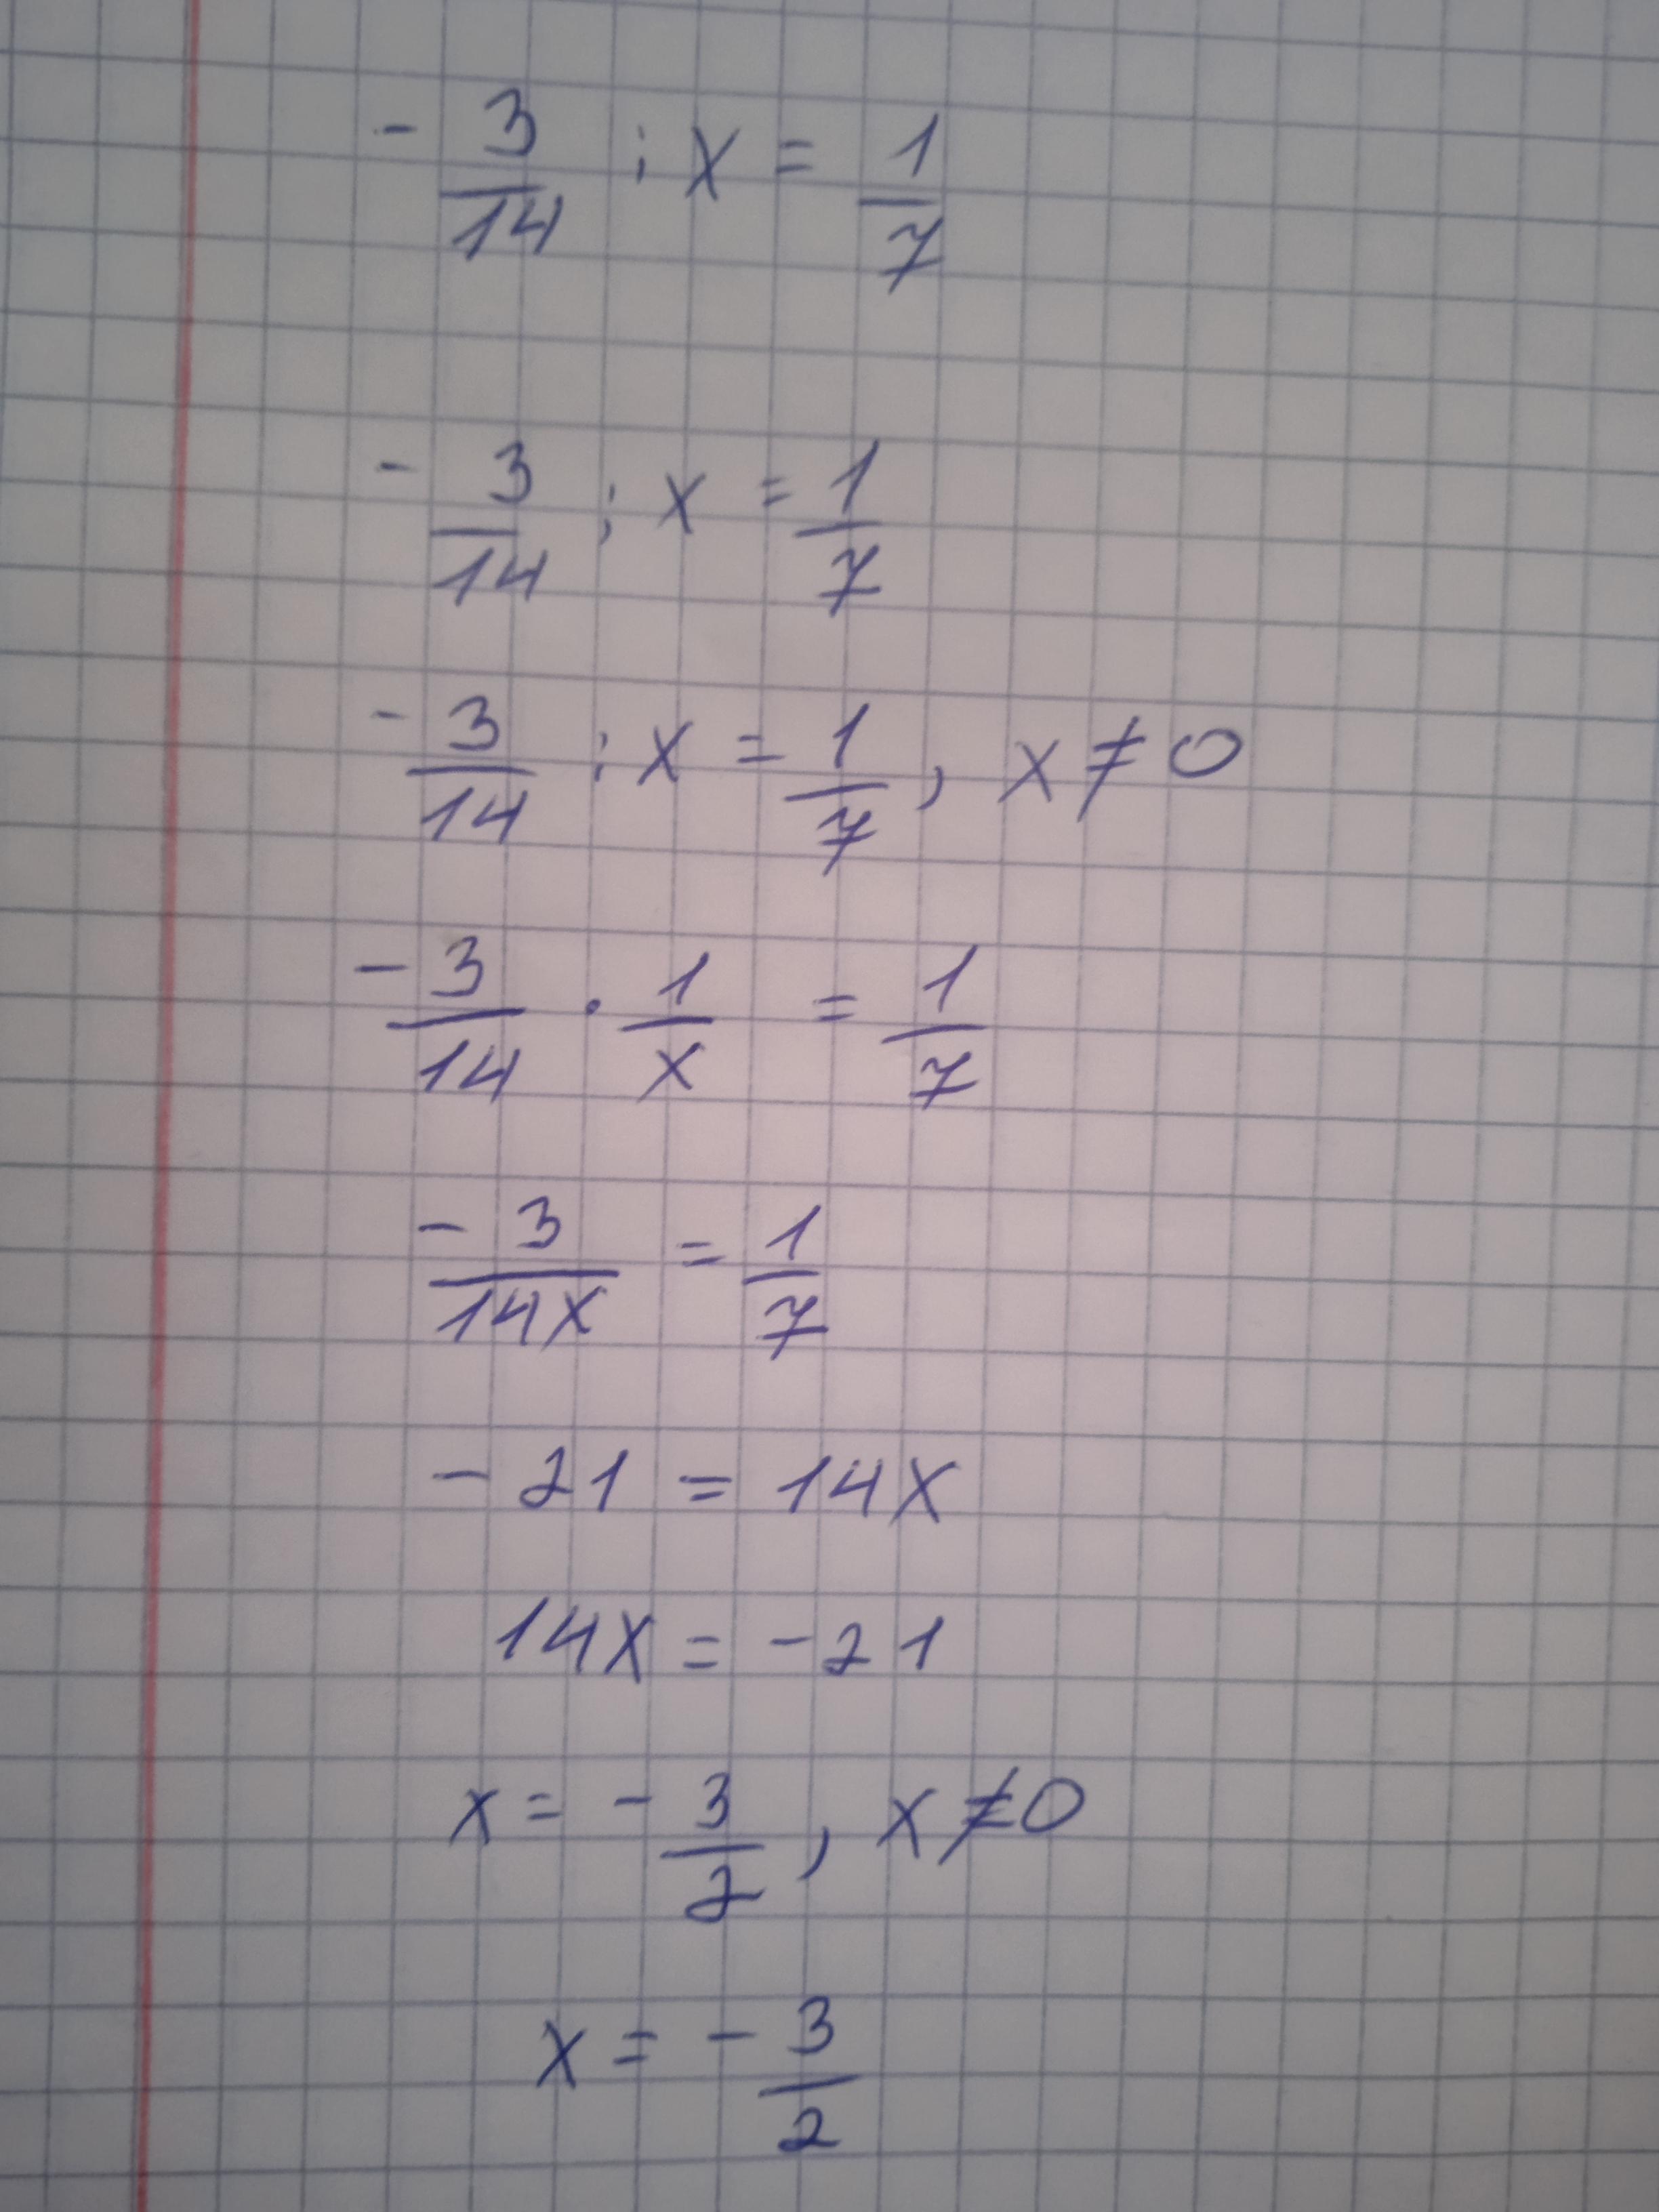 - 3/14 : x = 1/7
- 3/14 : x = 1/7
- 3/14 : x = 1/7 , x ≠ 0
- 3/14 · 1/x = 1/7
- 3/14x = 1/7
- 21 = 14x
14x = - 21
x = - 3/2 , x ≠ 0
x = - 3/2